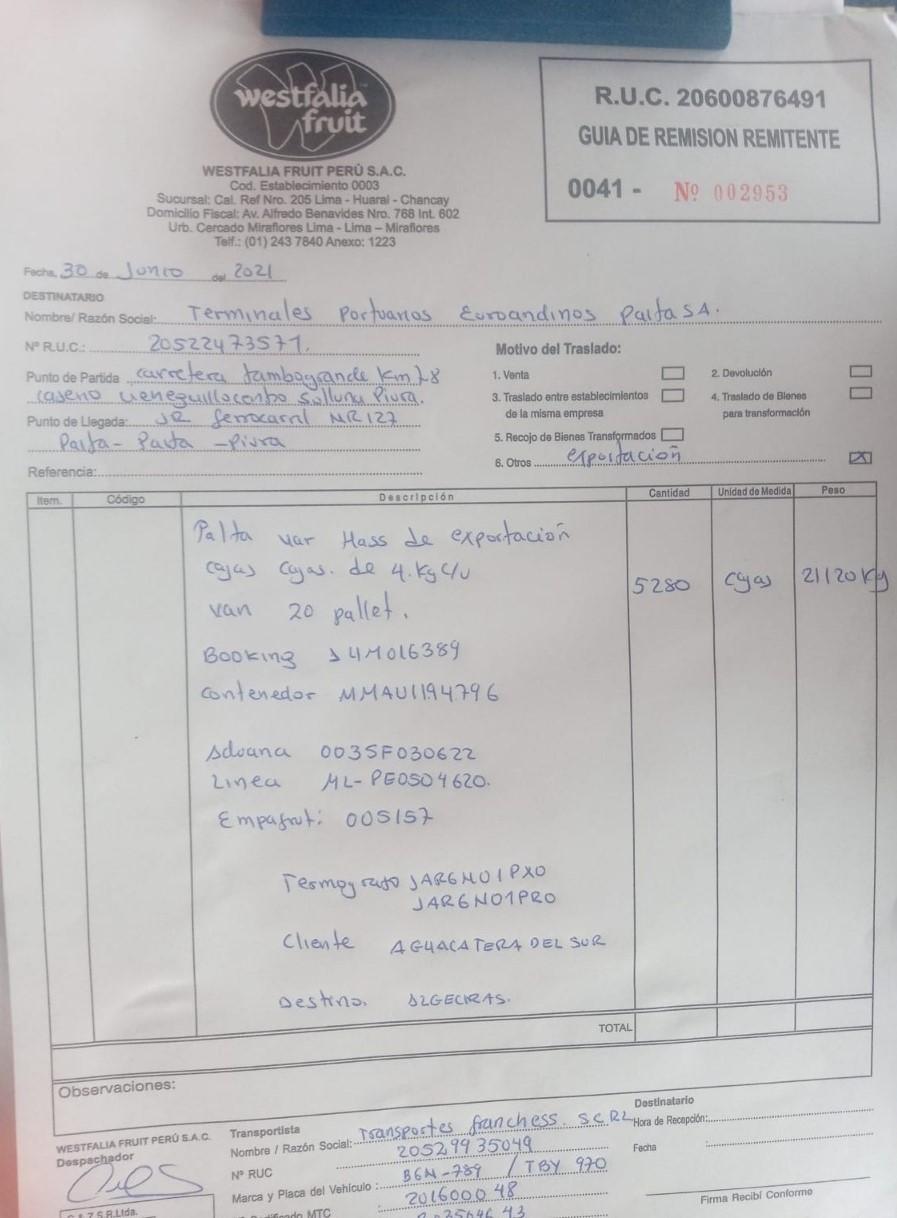 westfalia
fruit
WESTFALIA FRUIT PERÚ S.A.C.
Cod. Establecimiento 0003
Sucursal: Cal. Ref Nro. 205 Lima - Huaral - Chancay
Domicilio Fiscal: Av. Alfredo Benavides Nro. 768 Int. 602
Urb. Cercado Miraflores Lima - Lima – Miraflores
Telf.: (01) 243 7840 Anexo: 1223
R.U.C. 20600876491
GUIA DE REMISION REMITENTE
0041 - Nº 002953
Fecha, 30 de Junio del 2021
DESTINATARIO
Nombre/ Razón Social: Terminales Portuarios Euroandinos Paita S.A.
Nº R.U.C.: 20522473571.
Punto de Partida carretera tambogrande Km
Piura.
Punto de Llegada: JR ferrocarril NR 127
Paita - Paita - Piura
Referencia:
Motivo del Traslado:
1. Venta
2. Devolución
3. Traslado entre establecimientos
de la misma empresa
4. Traslado de Bienes
para transformación
5. Recojo de Bienes Transformados
6. Otros exportación
Item. Código Descripción Cantidad Unidad de Medida Peso
Palta var Hass de exportación
cajas cajas. de 4. Kg c/u 5280 cajas 21120 Kg
van 20 pallet.
Booking 14M016389
Contenedor MMAU1194796
Aduana 003SF030622
Linea ML-PE0504620.
Empafrut: 005157
Termografo JAR6N01PX0
JAR6N01PR0
Cliente AGUACATERA DEL SUR
Destino. ALGECIRAS.
TOTAL
Observaciones:
WESTFALIA FRUIT PERÚ S.A.C.
Despachador
Transportista
Nombre / Razón Social: Transportes franchess. S.C.R.L
Nº RUC 20529935049
Marca y Placa del Vehículo : B6N-789 / TBY 970
MTC : 201600048
Destinatario
Hora de Recepción:
Fecha :
Firma Recibí Conforme